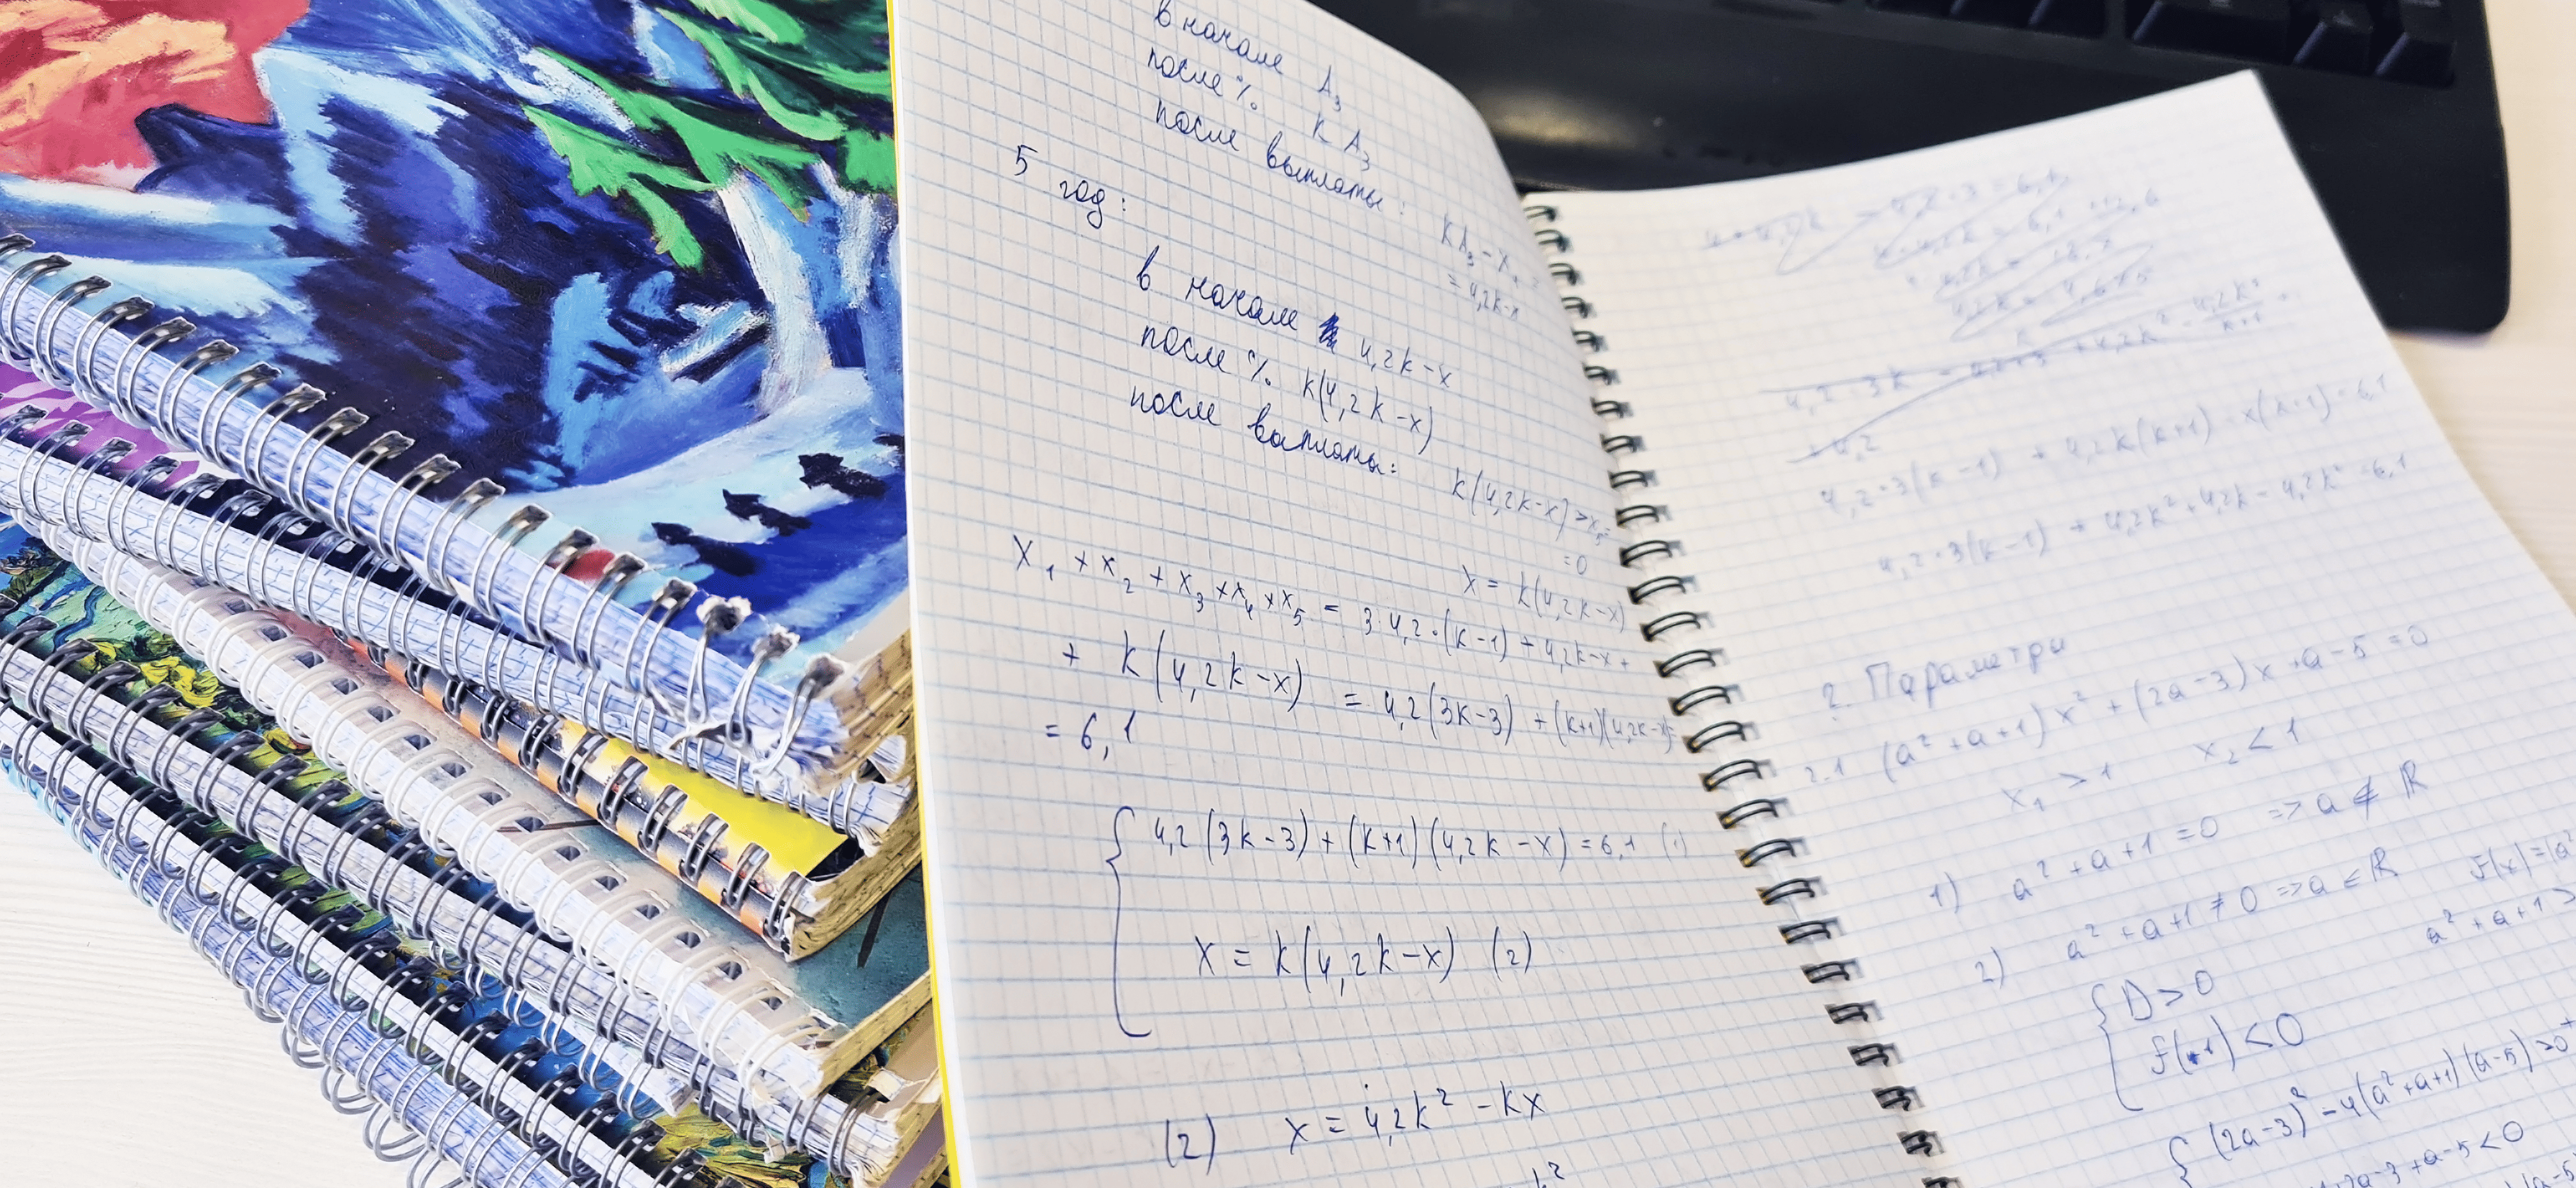 в начале A₃
после % kA₃
после выплаты: kA₃ - x₄ =
= 4,2k-x
5 год:
в начале 4,2k-x
после % k(4,2k-x)
после выплаты: k(4,2k-x) - x₅ =
= 0
x = k(4,2k-x)
x₁ + x₂ + x₃ + x₄ + x₅ = 3·4,2·(k-1) + 4,2k-x +
+ k(4,2k-x) = 4,2(3k-3) + (k+1)(4,2k-x) =
= 6,1
4,2(3k-3) + (k+1)(4,2k-x) = 6,1 (1)
x = k(4,2k-x) (2)
(2) x = 4,2k² - kx
4,2·3(k-1) + 4,2k(k+1) - x(k+1) = 6,1
4,2·3(k-1) + 4,2k² + 4,2k - 4,2k² = 6,1
2. Параметри
2.1 (a² + a + 1)x² + (2a-3)x + a - 5 = 0
x₁ > 1 x₂ < 1
1) a² + a + 1 = 0 => a ∉ ℝ
2) a² + a + 1 ≠ 0 => a ∈ ℝ f(x) = (a²
a² + a + 1 >
D > 0
f(1) < 0
(2a-3)² - 4(a² + a + 1)(a-5) > 0
2a - 3 + a - 5 < 0